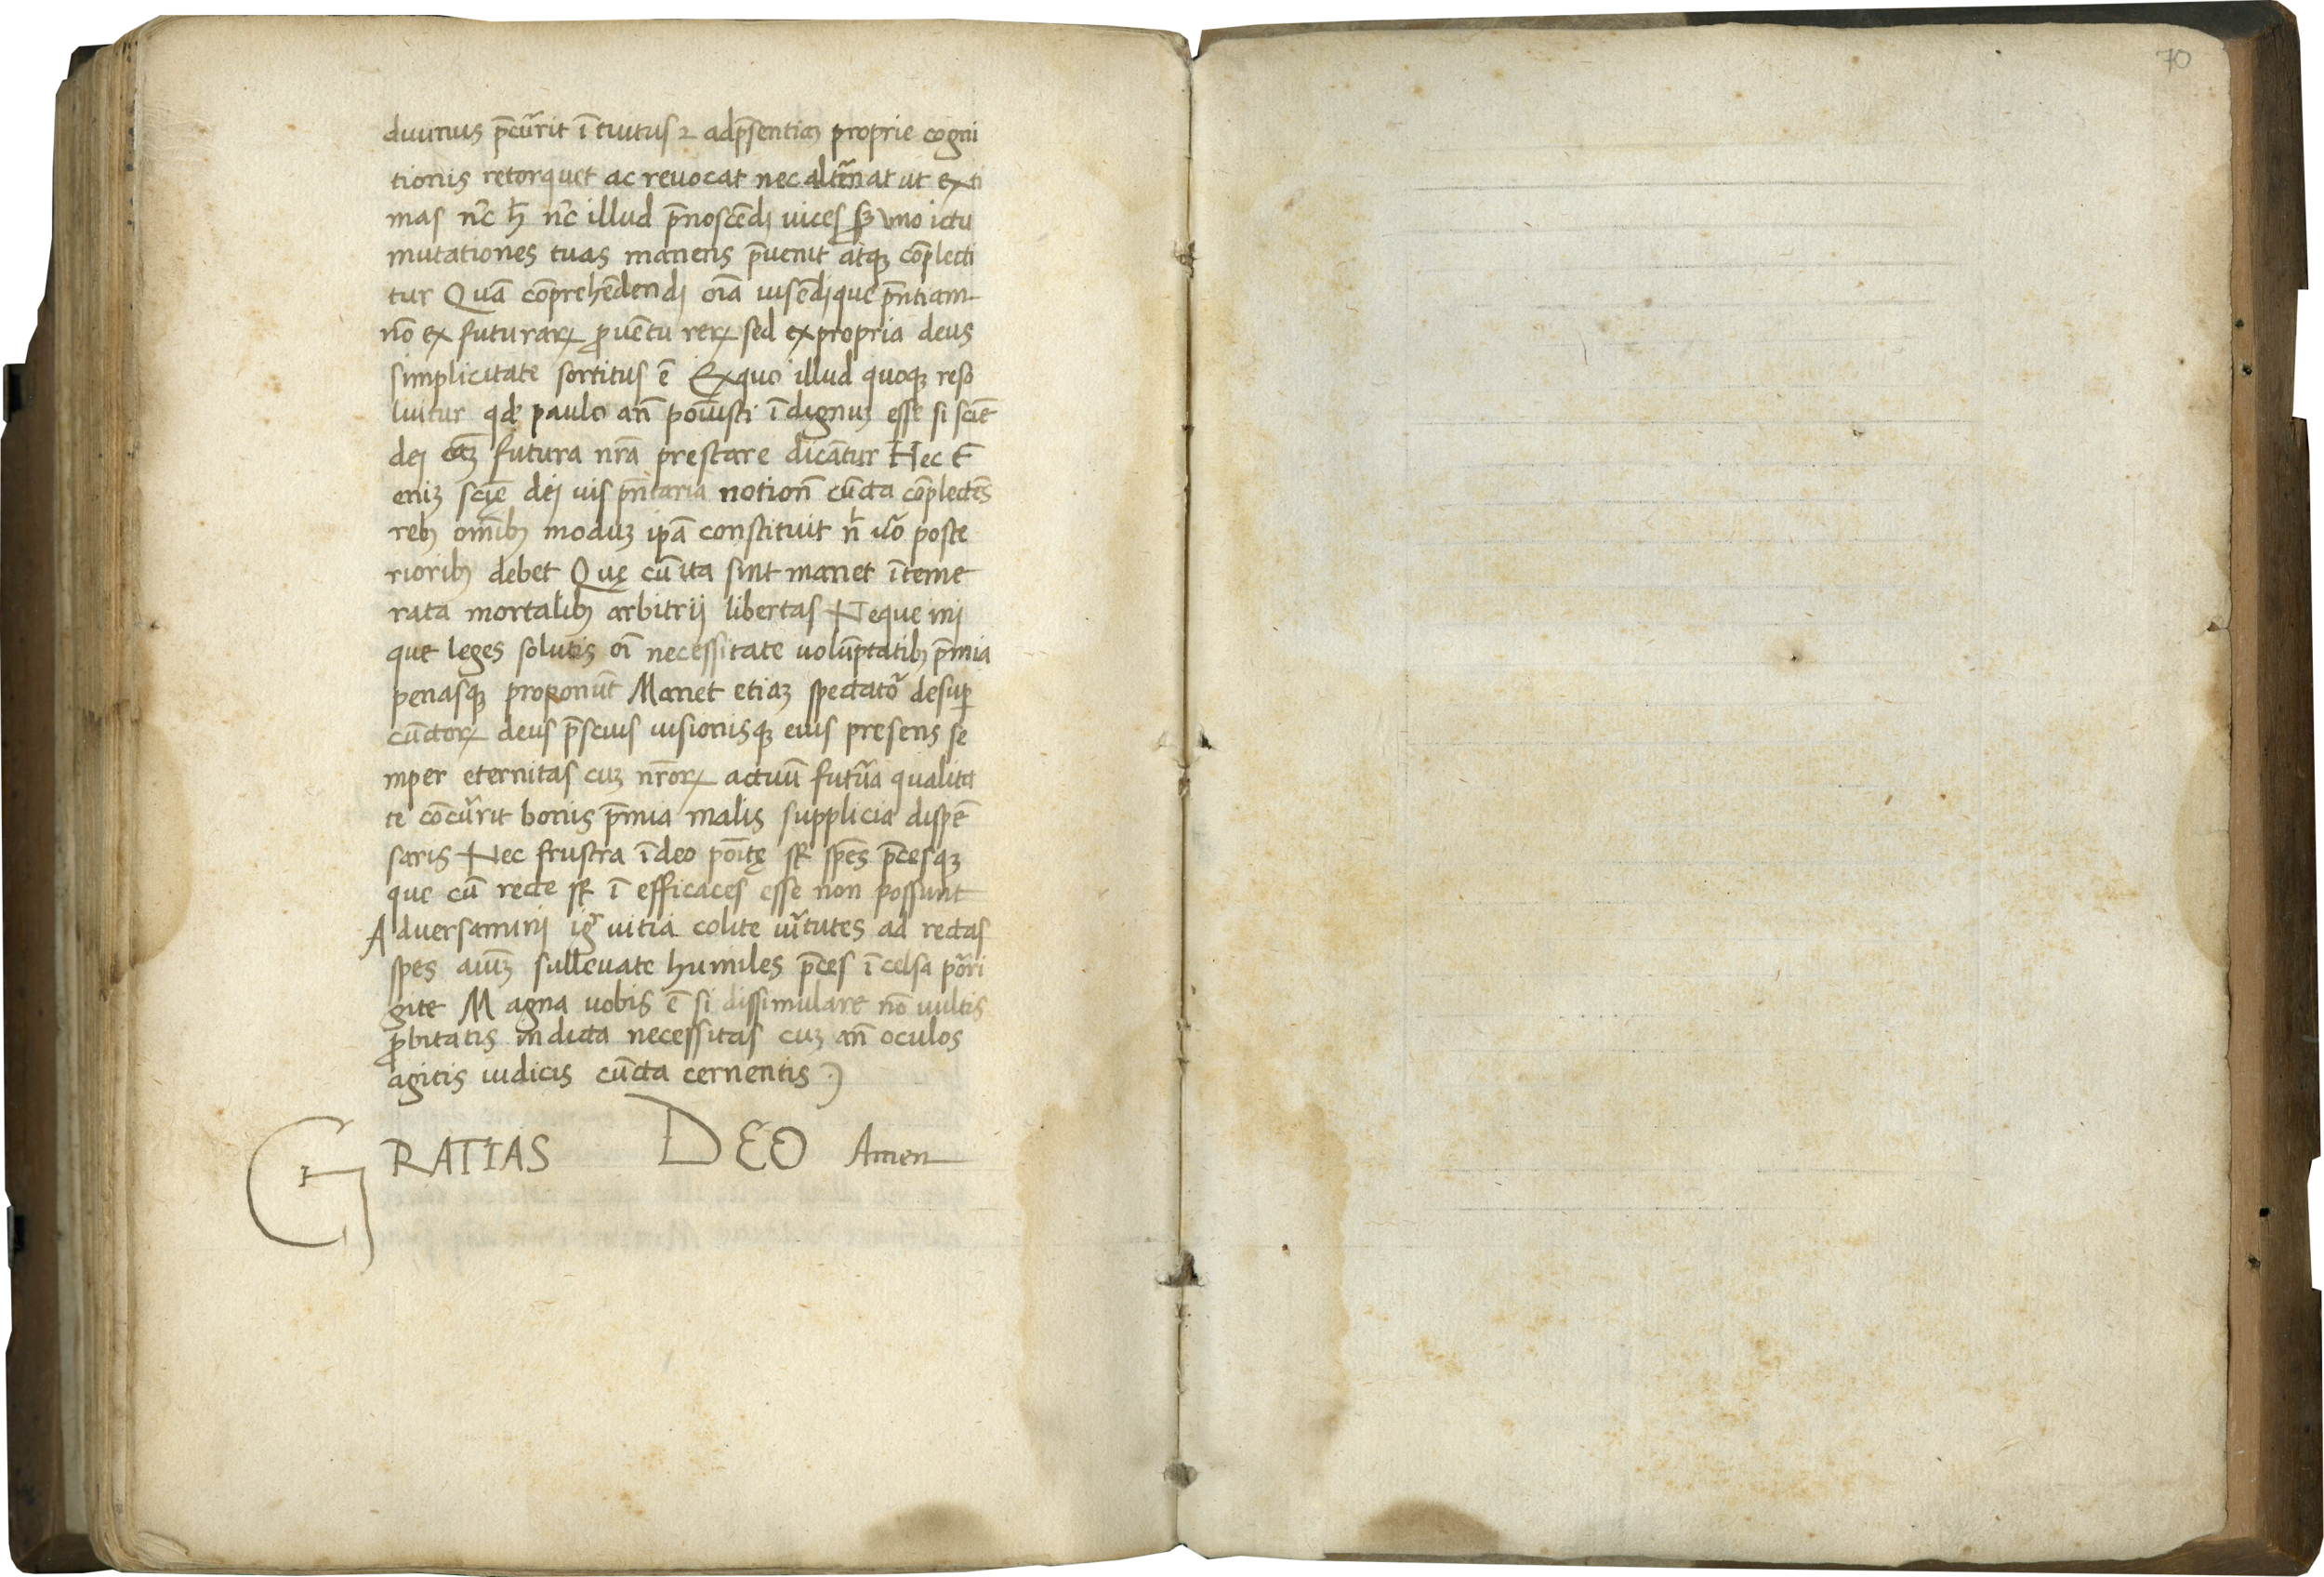 diuinus p̄cur̃rit ītuitus ⁊ adp̄sentiaꝫ proprie cogni
tionis retorquet ac reuocat nec alt̃nat ut exti
mas nc̃ h̄ nc̃ illud p̄noscēdi uices sꝫ uno ictu
mutationes tuas manens p̄uenit atqꝫ cōplecti
tur Quā cōprehēdendi oīa uisēdique p̄ntiam
nō ex futurarꝝ ꝓuētu rerꝝ sed ex propria deus
simplicitate sortitus ē Ex quo illud quoqꝫ reso
luitur qđ paulo an̄ pouisti īdignuꝫ esse si sciē
dei cāꝫ futura nrā prestare dicāntur Hec ē
eniꝫ scię dei uis pn̄taria notion̄ cūcta cōplectēs
rebꝫ omībꝫ moduꝫ ipā constituit n̄l u͂o poste
rioribꝫ debet Quę cū ita sint manet īteme
rata mortalibꝫ arbitrij libertas Neque ini
que leges solutis oī necessitate uolūptatibꝫ p̄mia
penasqꝫ proponūt Manet etiaꝫ spectato᷑ desuꝑ
cūctorꝝ deus p̄scius uisionisqꝫ eius presens se
mper eternitas cuꝫ nr̄orꝝ actuū futur̃a qualita
te cōcur̃rit bonis p̄mia malis supplicia dispē
saris Nec frustra ī deo poītę sr̄ spēs p̄cesqꝫ
que cū recte sr̄ ī efficaces esse non possunt
Aduersamini ig̃ uitia colite uir̃tutes ad rectas
spes aiūꝫ subleuate humiles p̄ces ī celsa por̃ri
gite Magna uobis ē si dissimulare nō uultis
ꝓbitatis indicta necessitas cuꝫ an̄ oculos
agitis iudicis cūcta cernentis :)
GRATIAS DEO Amen
70